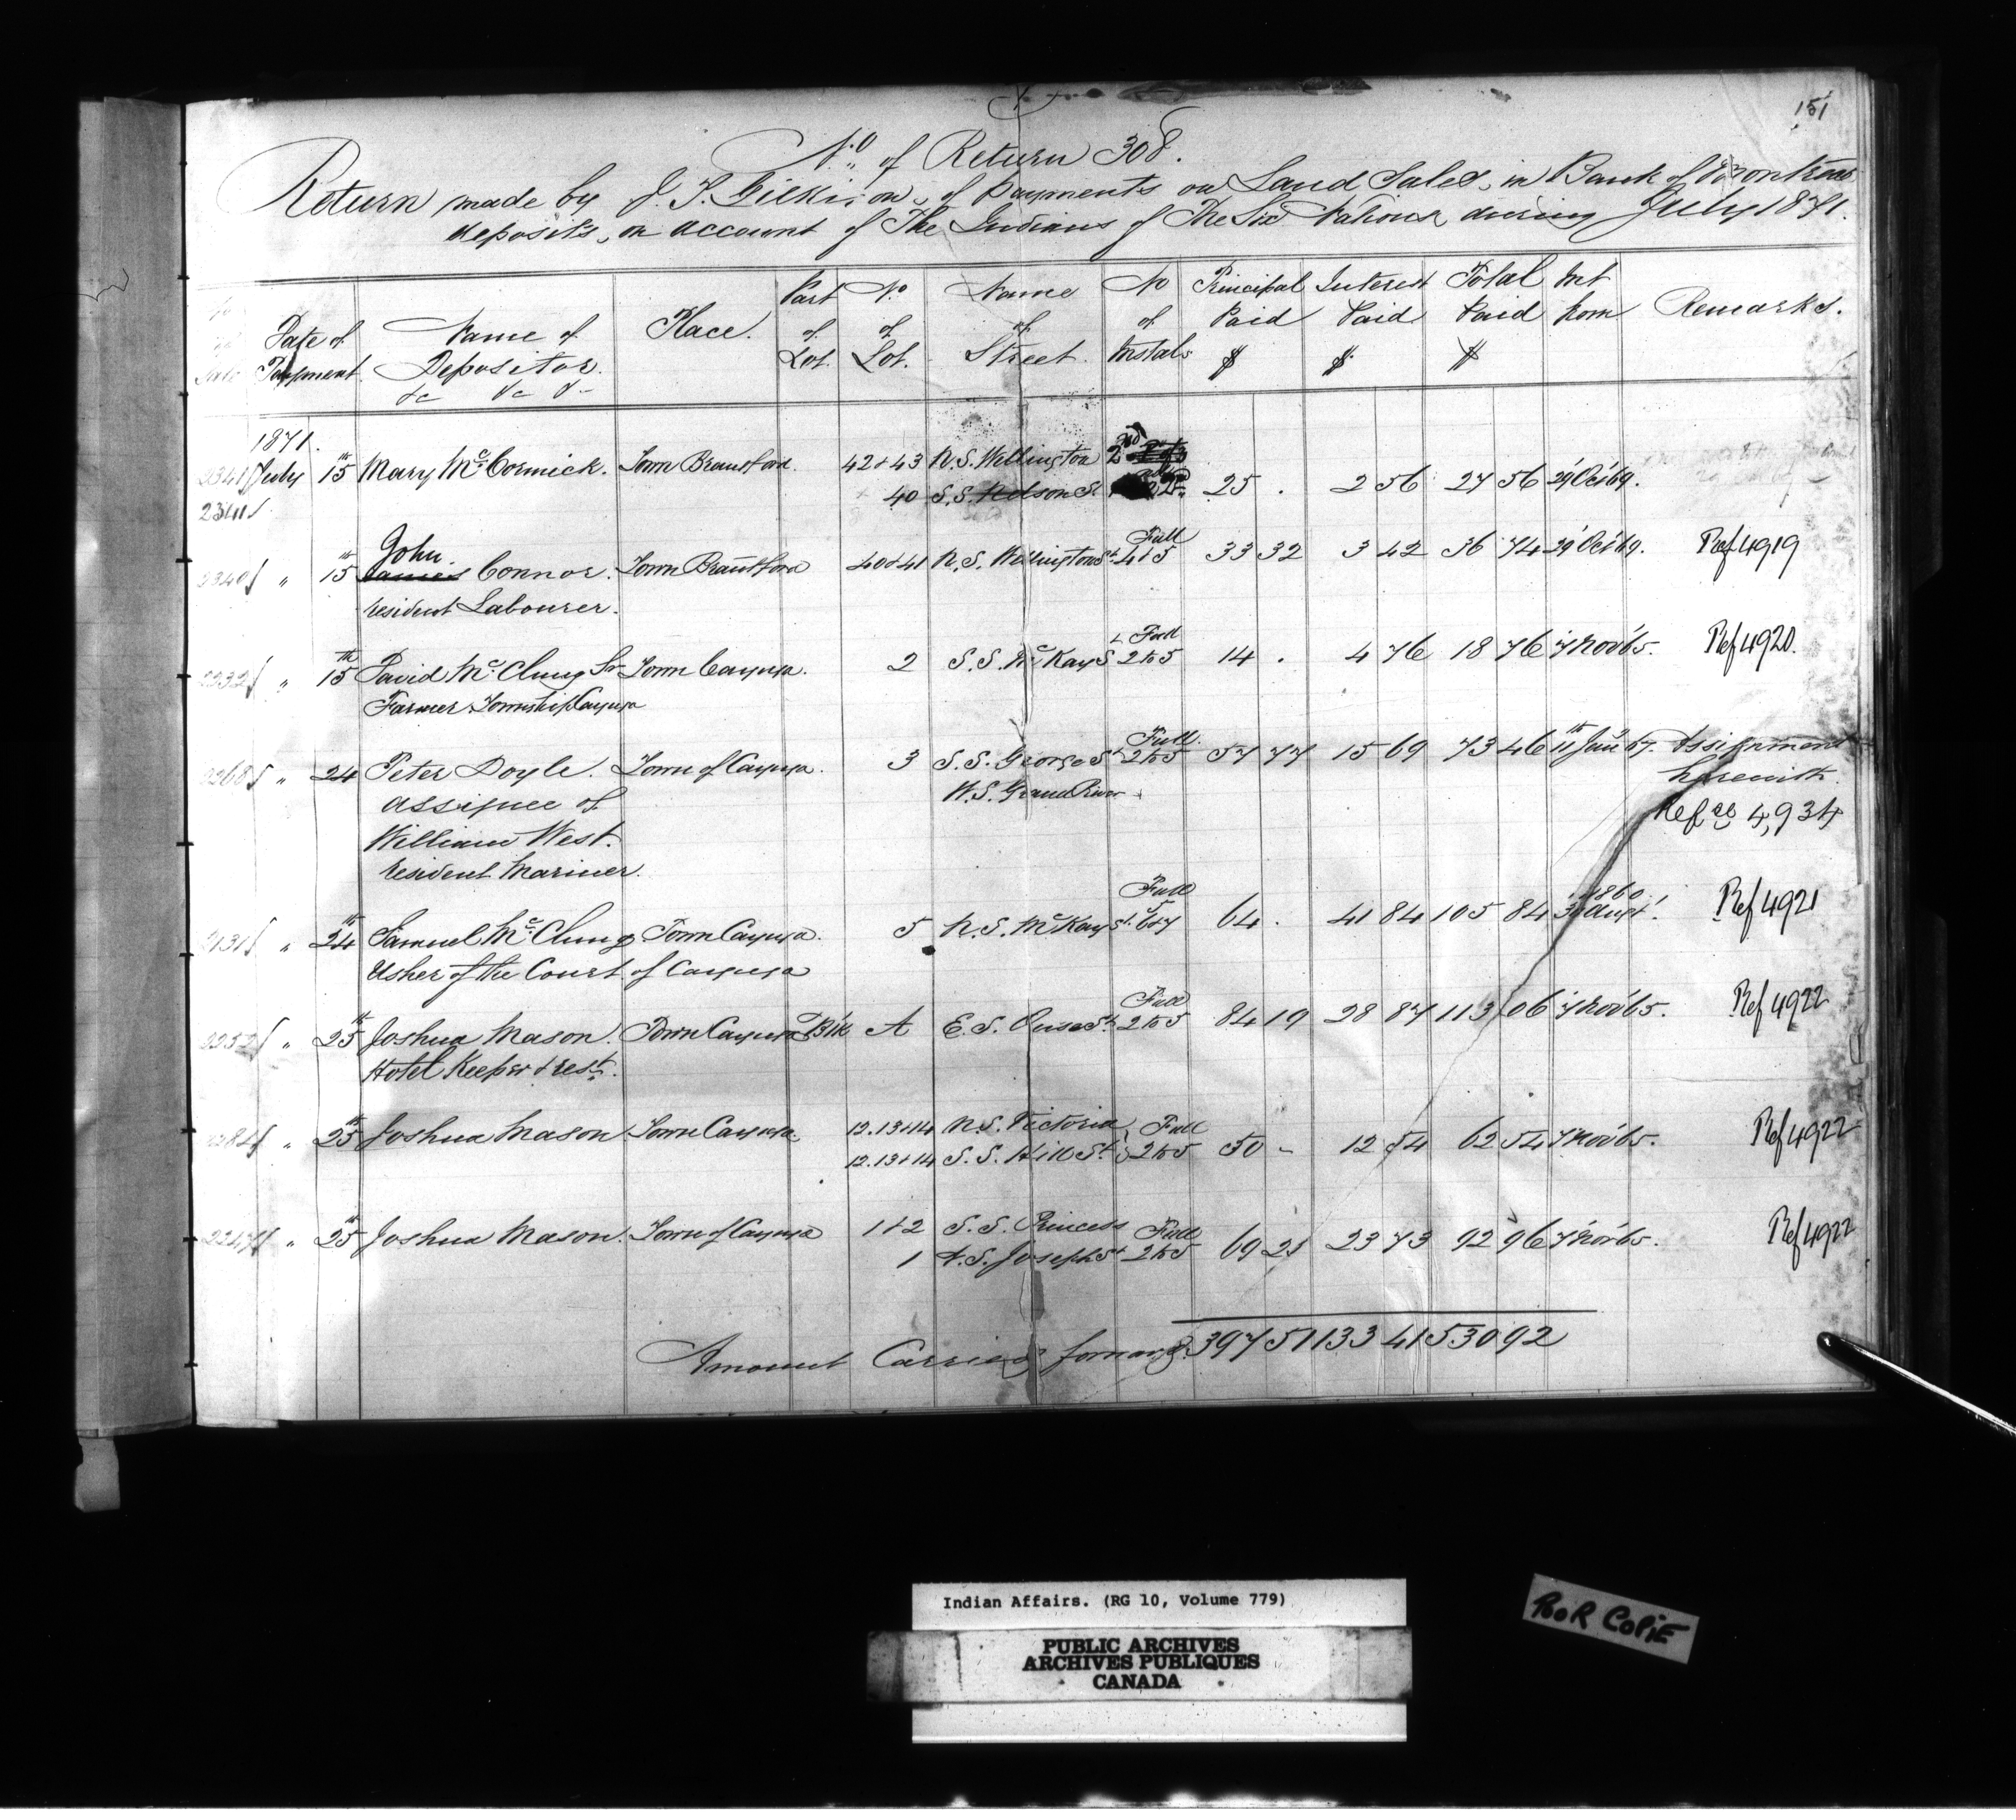 151
No. of Return 308.
Return made by J. T. Gilkison, of Payments on Land Sales, in Bank of Montreal
deposits, on account of The Indians of The Six Nations during July 1871.
Date of Payment Name of Depositor &c &c &c Place. Part of Lot. No. of Lot. Name of Street. No of Instals. Principal Paid $ Interest Paid $ Total Paid $ Int from Remarks.
1871.
2341 July 15th Mary McCormick. Town Brantford. 42+43 N.S. Wellington 2nd
2341 40 S.S. Nelson St 25 . 2 56 27 56 29 Oct 69.
2340 " 15th John James Connor. Town Brantford 40+41 N.S. Wellington St Full 4+5 33 32 3 42 36 74 29 Oct 69. Ref 4919
resident Labourer.
2232 " 15th David McClung Sr Town Cayuga. 2 S.S. McKay St Full 2to5 14 . 4 76 18 76 7 Nov 65. Ref 4920.
Farmer Township Cayuga
2268 " 24 Peter Doyle. Town of Cayuga. 3 S.S. George St Full 2to5 57 77 15 69 73 46 11th Jan 67. Assignment
assignee of W.S. Grand River herewith.
William West. Refce 4,934
resident Mariner.
2131 " 24th Samuel McClung Town Cayuga. 5 N.S. McKay St. Full 5 6+7 64 . 41 84 105 84 30 Augt 1860. Ref 4921
Usher of the Court of Cayuga
2252 " 25th Joshua Mason. Town Cayuga Blk A E.S. Ouse St Full 2to5 84 19 28 87 113 06 7 Nov 65. Ref 4922
Hotel Keeper & rest.
2284 " 25th Joshua Mason Town Cayuga. 12.13+14 N.S. Victoria Full
12.13+14 S.S. Hill St 2to5 50 - 12 54 62 54 7 Nov 65. Ref 4922
2247 " 25th Joshua Mason. Town of Cayuga 1+2 S.S. Princess Full
1 N.S. Joseph St 2to5 69 23 23 73 92 96 7 Nov 65. Ref 4922
Amount Carried forward $ 397 51 133 41 530 92
Indian Affairs. (RG 10, Volume 779)
PUBLIC ARCHIVES
ARCHIVES PUBLIQUES
CANADA
POOR COPIE